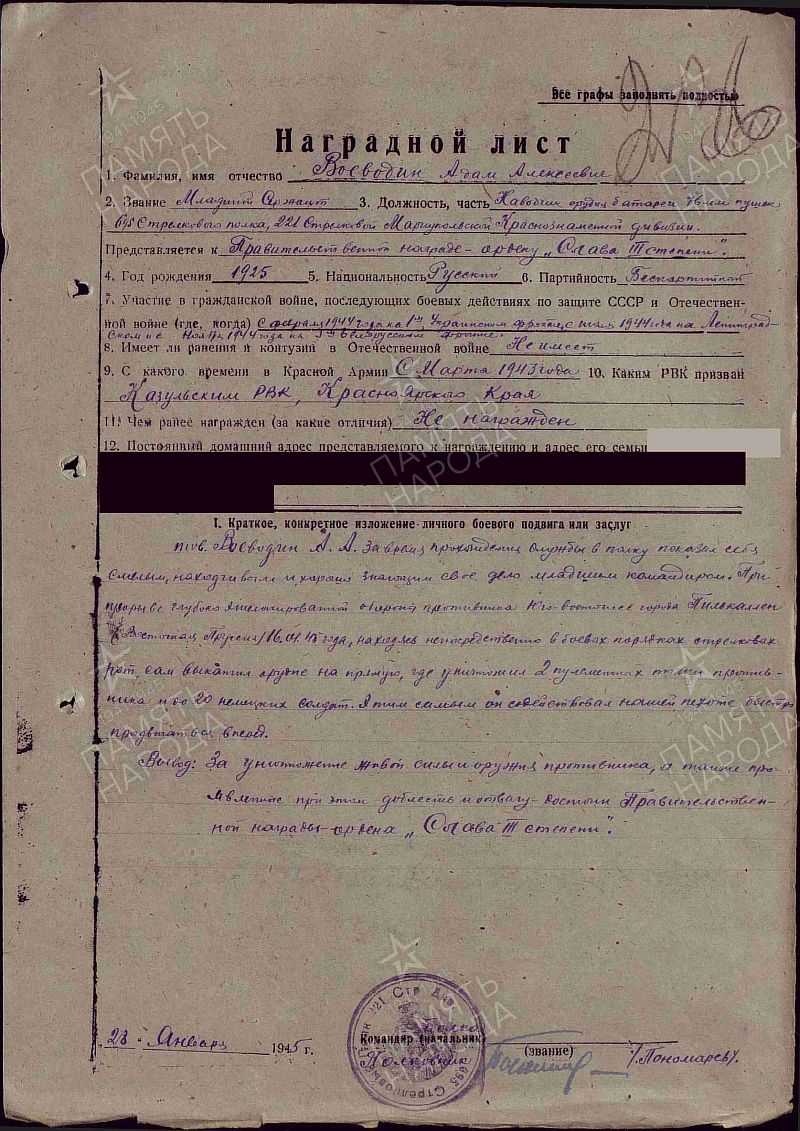 Все графы заполнять полностью
Наградной лист
1. Фамилия, имя отчество Воеводин Адам Алексеевич
2. Звание Младший Сержант 3. Должность, часть Наводчик орудия батареи 76 м/м пушек
695 Стрелкового полка, 221 Стрелковой Мариупольской Краснознаменной дивизии.
Представляется к Правительственной награде - ордену „Слава III степени".
4. Год рождения 1925 5. Национальность Русский 6. Партийность Беспартийный
7. Участие в гражданской войне, последующих боевых действиях по защите СССР и Отечествен-
ной войне (где, когда) С февраля 1944 года на 1м Украинском фронте, с 1944 года на Ленинград-
ском и с Ноября 1944 года на 3м Белорусском фронте.
8. Имеет ли ранения и контузии в Отечественной войне Не имеет
9. С какого времени в Красной Армии С Марта 1943 года 10. Каким РВК призван
Казульским РВК, Красноярского Края
11. Чем ранее награжден (за какие отличия) Не награжден
12. Постоянный домашний адрес представляемого к награждению и адрес его семьи
I. Краткое, конкретное изложение личного боевого подвига или заслуг
тов. Воеводин А. А. За время прохождения службы в полку показал себя
смелым, находчивым и хорошо знающим свое дело младшим командиром. При
прорыве глубоко эшелонированной обороны противника Юго-восточнее города Пилькаллен
/Восточная Пруссия/ 16.01.45 года, находясь непосредственно в боевых порядках стрелковых
рот, сам выкатил орудие на прямую, где уничтожил 2 пулеметных точки против-
ника и до 20 немецких солдат. Этим самым он содействовал нашей пехоте быстро
продвигаться вперед.
Вывод: За уничтожение живой силы и оружия противника, а также про-
явленные при этом доблесть и отвагу - достоин Правительствен-
ной награды - ордена „Слава III степени".
28 - Января 1945 г.
полка
Командир (начальник)
Полковник
(звание)
/Пономарев/.
221 Стр Див
695 Стрелковый
ПАМЯТЬ НАРОДА
1941 1945